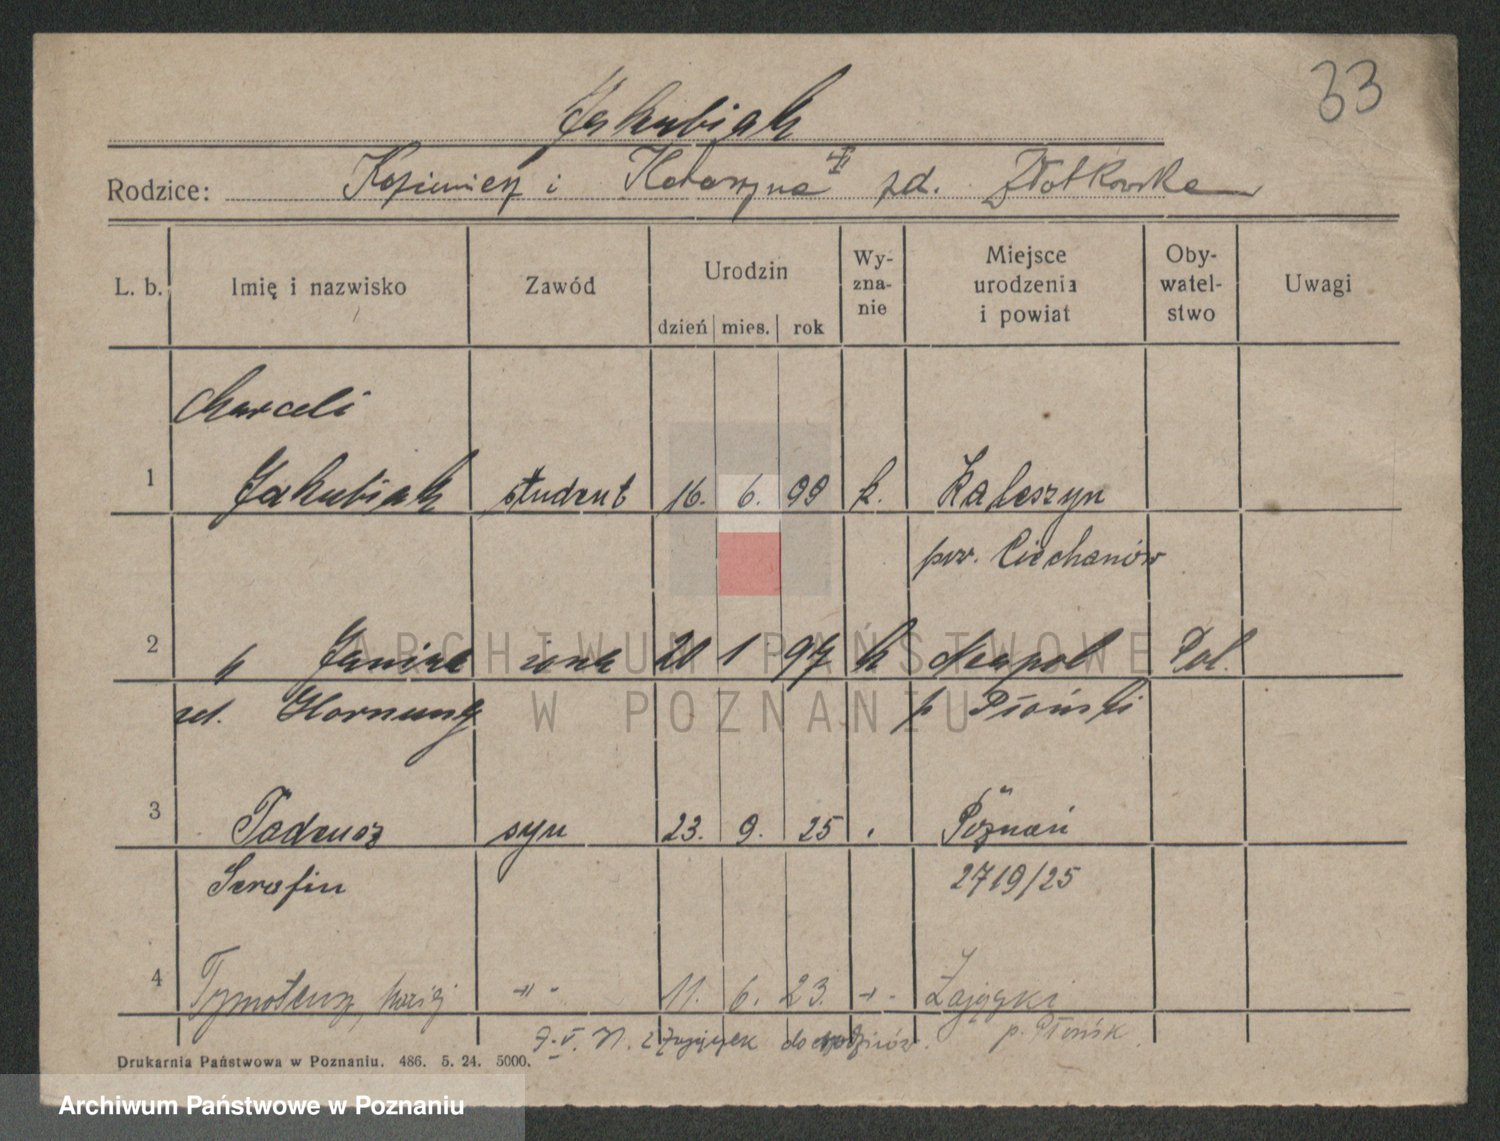 33
Jakubiak
Rodzice: Kazimierz i Katarzyna zd. Złotkowska
L. b. Imię i nazwisko Zawód Urodzin dzień mies. rok Wy-zna-nie Miejsce urodzenia i powiat Oby-watel-stwo Uwagi
Marceli
1 Jakubiak student 16. 6. 99 k. Kaleszyn
pow. Ciechanów
2 " Janina żona 20 1 97 k Neapol Pol.
zd. Hornung p Płoński
3 Tadeusz syn 23. 9. 25 Poznań
Serafin 2719/25
4 Tymoteusz, -"- 11. 6. 23. -"- Zajączki
p. Płońsk.
9. V. z Zajączek do rodziców.
Drukarnia Państwowa w Poznaniu. 486. 5. 24. 5000.
ARCHIWUM PAŃSTWOWE
W POZNANIU
Archiwum Państwowe w Poznaniu